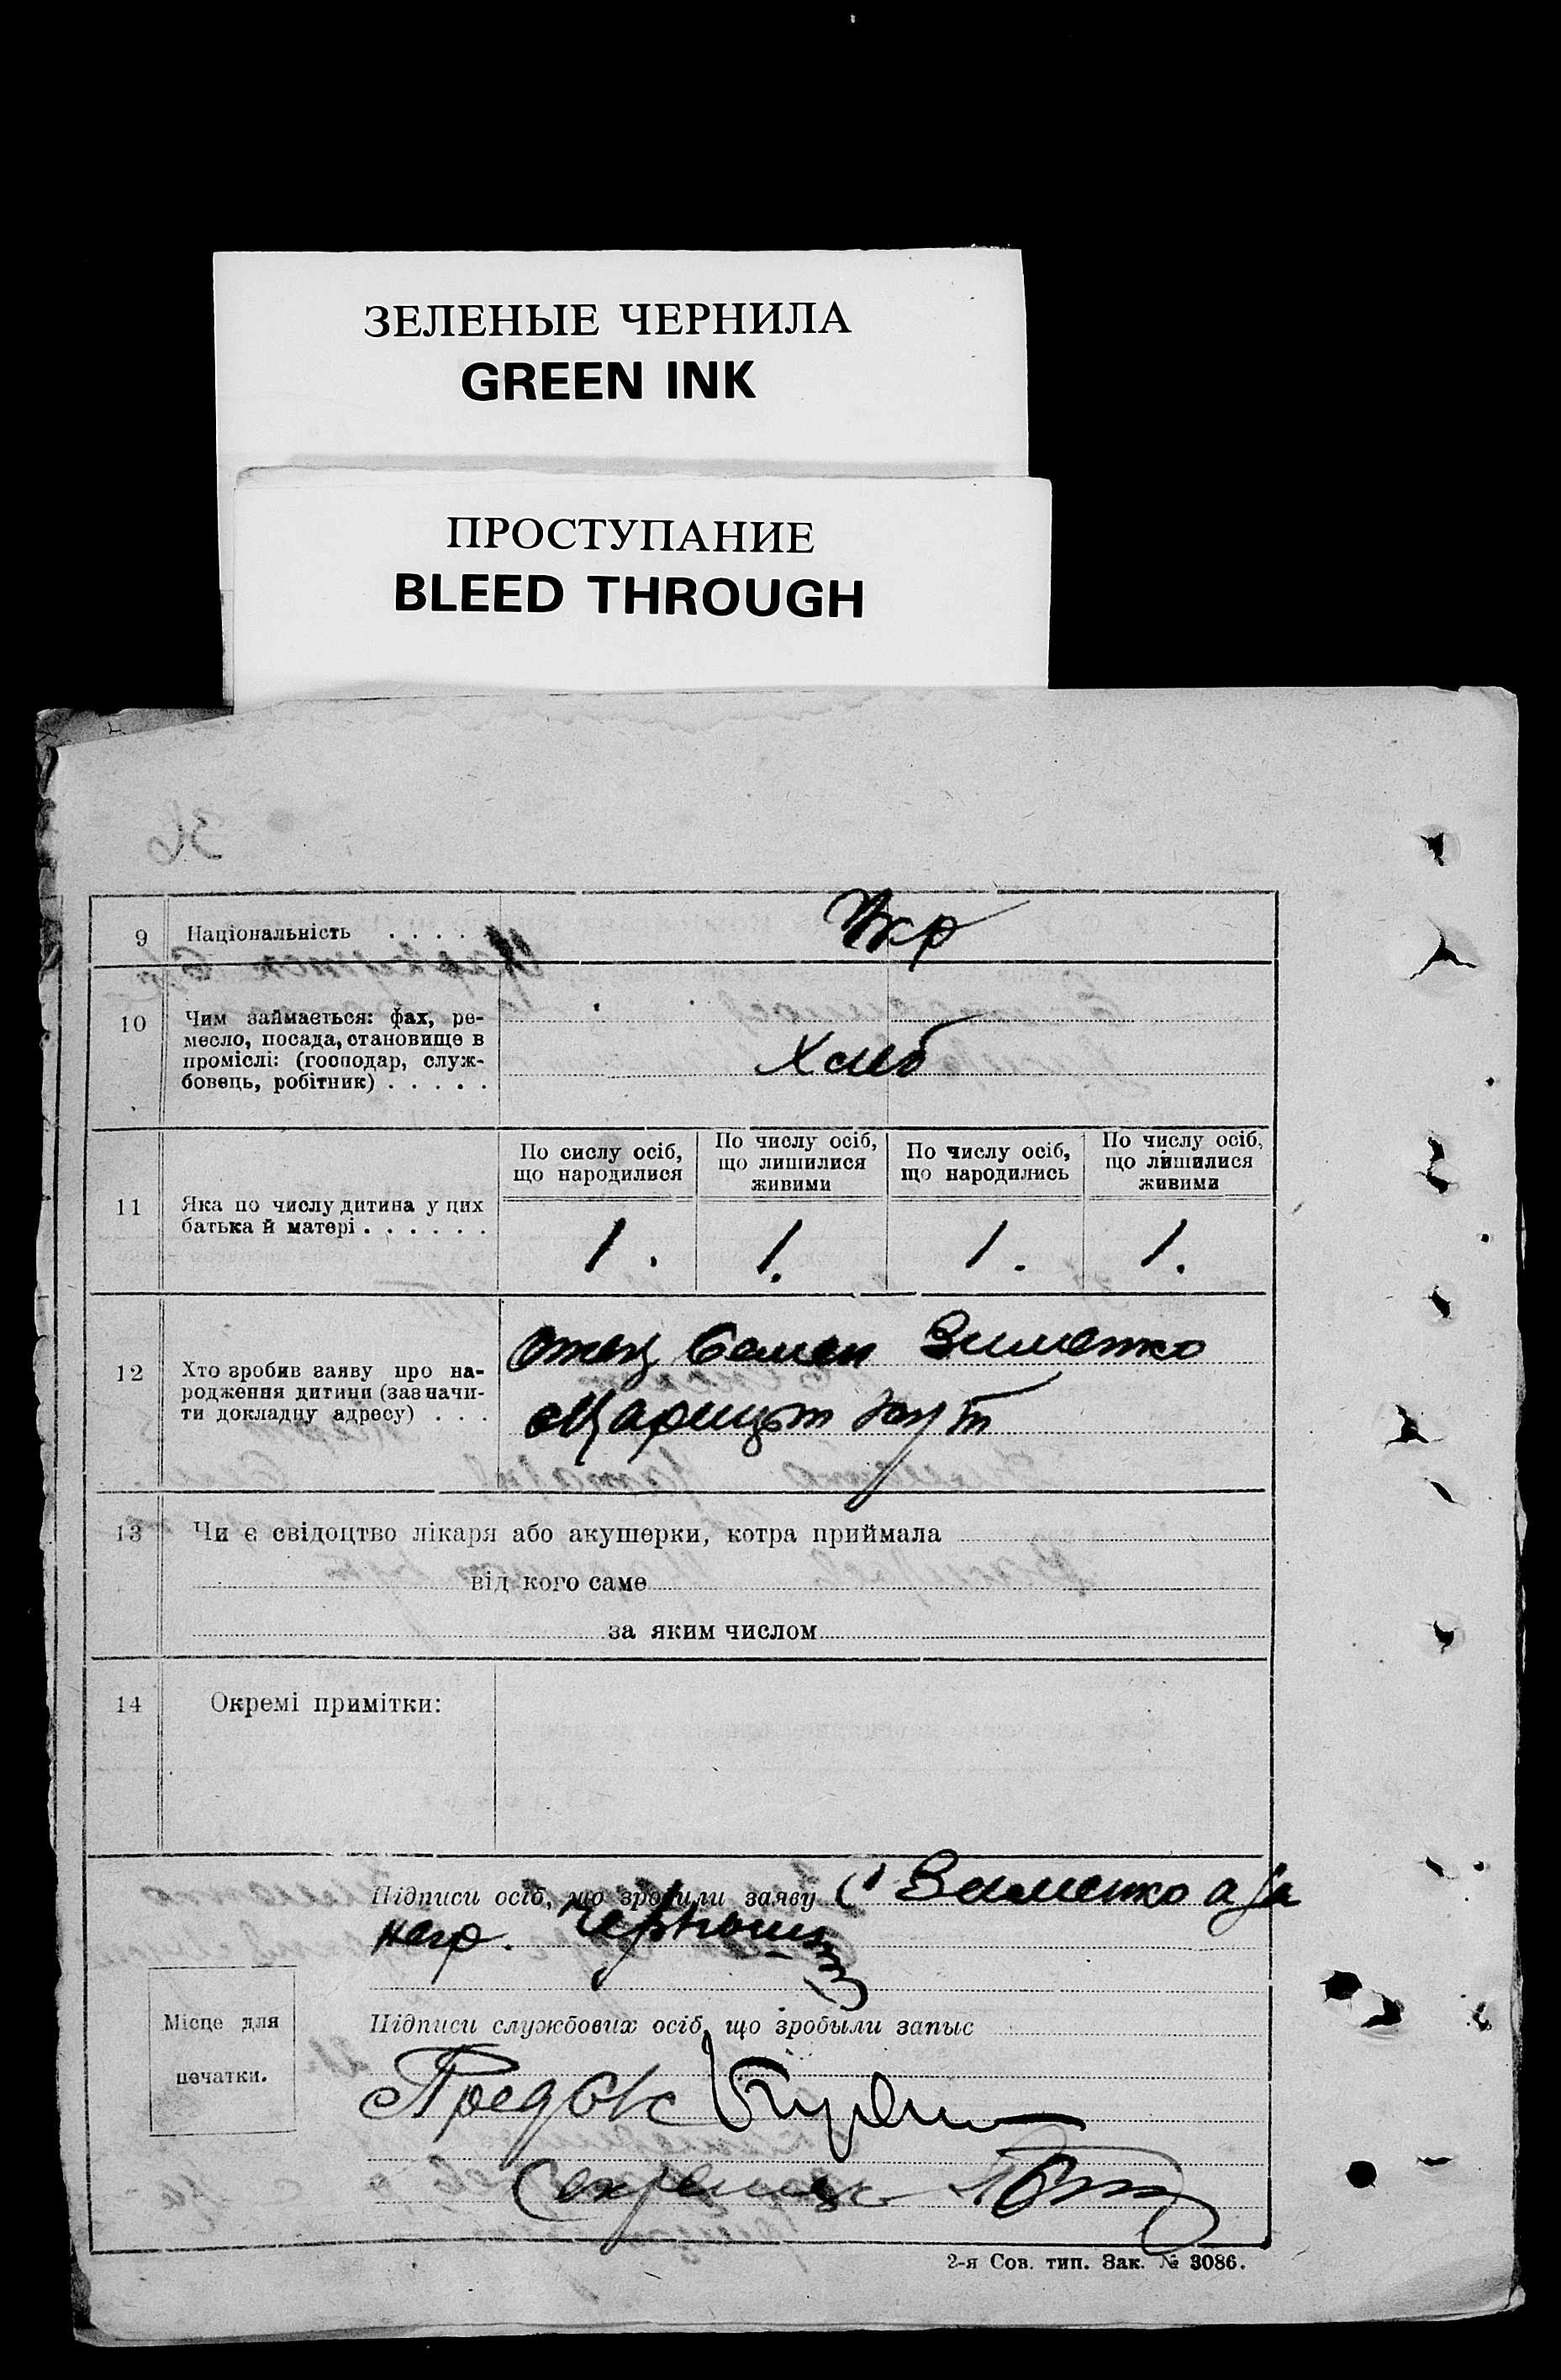 ЗЕЛЕНЫЕ ЧЕРНИЛА
GREEN INK
ПРОСТУПАНИЕ
BLEED THROUGH
36
9 Національність . . . . . Укр
10 Чим займається: фах, ре-
месло, посада, становище в
проміслі: (господар, служ-
бовець, робітник) . . . . .
Хлеб
По сислу осіб,
що народилися
По числу осіб,
що лишилися
живими
По числу осіб,
що народились
По числу осіб,
що лишилися
живими
11 Яка по числу дитина у цих
батька й матері . . . . . .
1. 1. 1. 1.
12 Хто зробив заяву про на-
родження дитини (зазначи-
ти докладну адресу) . . .
Отец Семен Зименко
Царицын Кут
13 Чи є свідоцтво лікаря або акушерки, котра приймала
від кого саме
за яким числом
14 Окремі примітки:
Підписи осіб, що зробили заяву С Зименко а за
негр.
Місце для
печатки.
Підписи службових осіб, що зробыли запыс
Пред
Секретарь
2-я Сов. тип. Зак. № 3086.